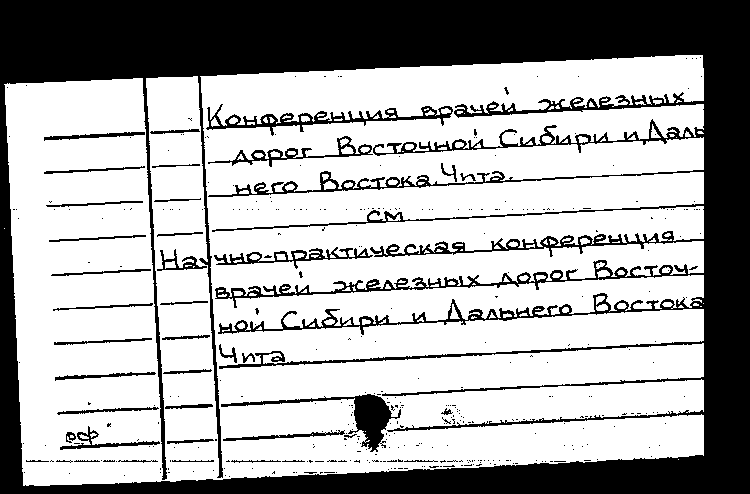 Конференция врачей железных
дорог Восточной Сибири и Даль
него Востока. Чита.
см
Научно-практическая конференция
врачей железных дорог Восточ-
ной Сибири и Дальнего Востока
Чита